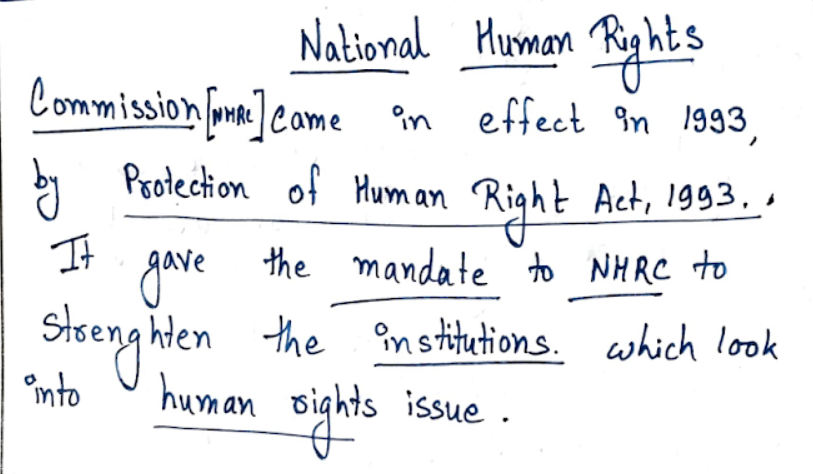 National Human Rights
Commission [NHRC] came in effect in 1993,
by Protection of Human Right Act, 1993..
It gave the mandate to NHRC to
strenghten the institutions. which look
into human rights issue.